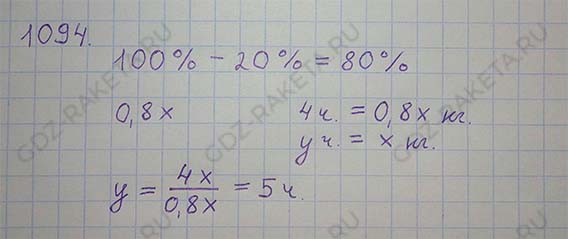 1094.
100% - 20% = 80%
0,8x 4ч. = 0,8x кг.
yч. = x кг.
y = 4x/0,8x = 5ч.
GDZ-RAKETA.RU